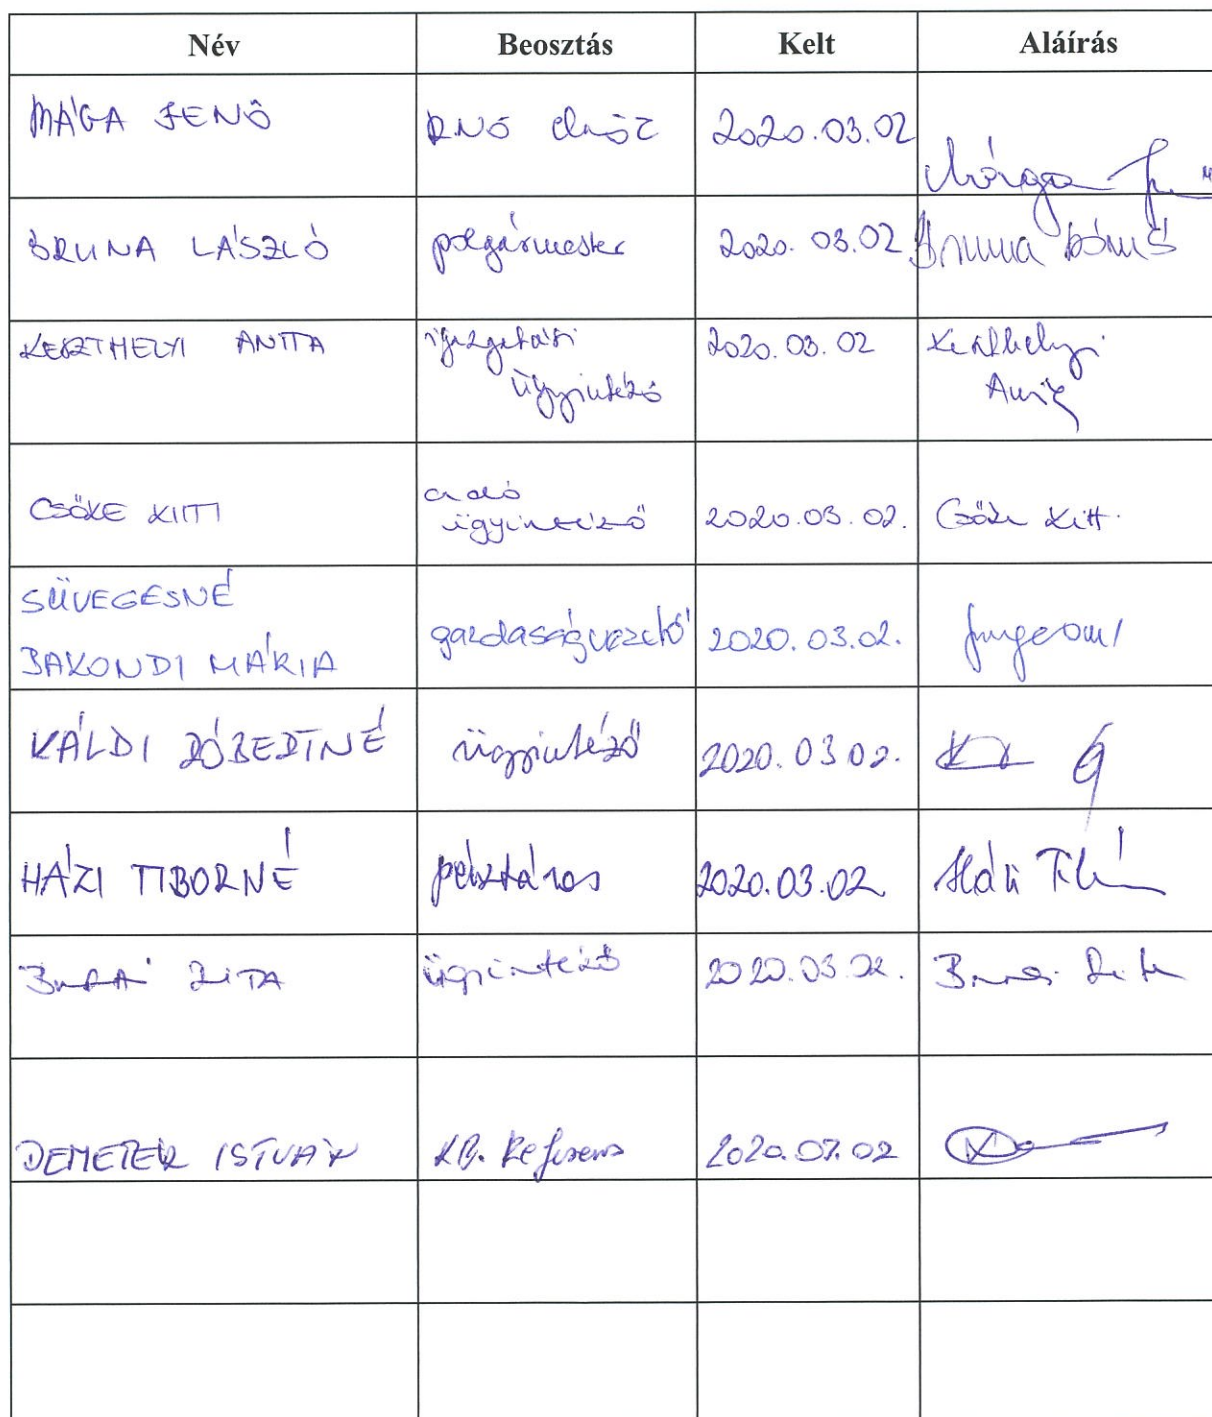 Név Beosztás Kelt Aláírás
MÁGA JENŐ RNÖ elnök 2020.03.02 Mága
BRUNA LÁSZLÓ polgármester 2020. 03.02. Bruna László
KESZTHELYI ANITA igazgatási 2020.03.02 Keszthelyi
ügyintéző Anita
CSŐKE KITTI adó
ügyintéző 2020.03.02. Csőke Kitti
SÜVEGESNÉ
BAKONDI MÁRIA gazdaságvezető 2020.03.02.
KÁLDI RÓBERTNÉ ügyintéző 2020.03 02.
HÁZI TIBORNÉ pénztáros 2020.03.02 Házi
BURAI ZITA ügyintéző 2020.03.02. Burai Zita
DEMETER ISTVÁN KB. Referens 2020.07.02